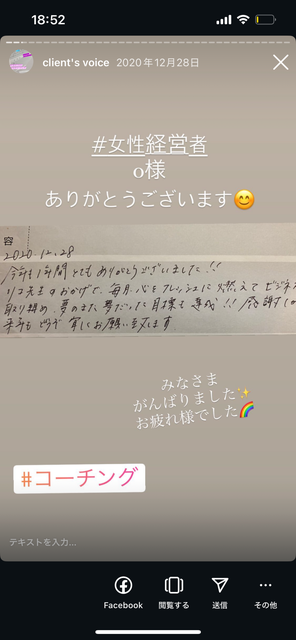 18:52
client's voice 2020年12月28日
#女性経営者
o様
ありがとうございます😊
容
2020 12.28
今年も1年間とてもありがとうございました!!
リコ先生のおかげで、毎月心をフレッシュに燃えてビジネス
取り組め、夢のまた夢だった目標も達成!!感謝
来年もどうぞ宜しくお願い致します
みなさま
がんばりました✨
お疲れ様でした🌈
#コーチング
テキストを入力...
Facebook 閲覧する 送信 その他